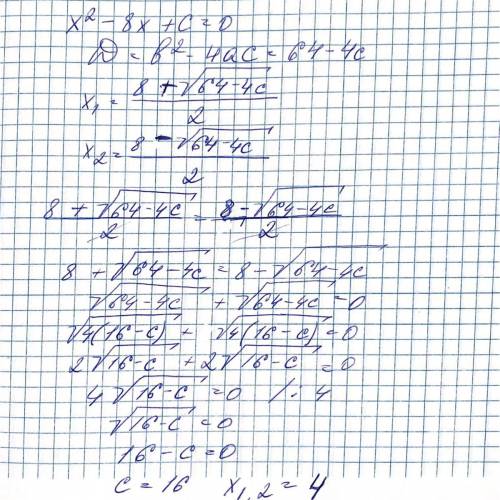 x² - 8x + c = 0
D = b² - 4ac = 64 - 4c
x₁ = (8 + √(64 - 4c)) / 2
x₂ = (8 - √(64 - 4c)) / 2
(8 + √(64 - 4c)) / 2 = (8 - √(64 - 4c)) / 2
8 + √(64 - 4c) = 8 - √(64 - 4c)
√(64 - 4c) + √(64 - 4c) = 0
√(4(16 - c)) + √(4(16 - c)) = 0
2√(16 - c) + 2√(16 - c) = 0
4√(16 - c) = 0 /: 4
√(16 - c) = 0
16 - c = 0
c = 16 x₁,₂ = 4